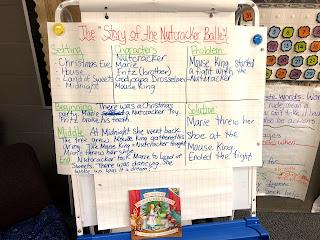 The "Story of the Nutcracker Ballet"
Setting
Christmas Eve
House
Land of Sweets
Midnight
Characters
Nutcracker
Marie
Fritz (brother)
Godpapa Drosselmeier
Mouse King
Problem
Mouse King started
a fight with the
Nutcracker
Beginning There was a Christmas
party. Marie a Nutcracker Toy.
Fritz broke his teeth.
Middle At Midnight she went back
the tree grew. Mouse King gathered his
army. The Mouse King + Nutcracker fought
Marie threw her shoe
End Nutcracker took Marie to Land of
Sweets. There was dancing. She
woke up was it a dream??
Solution
Marie threw her
shoe at the
Mouse King
Ended the fight